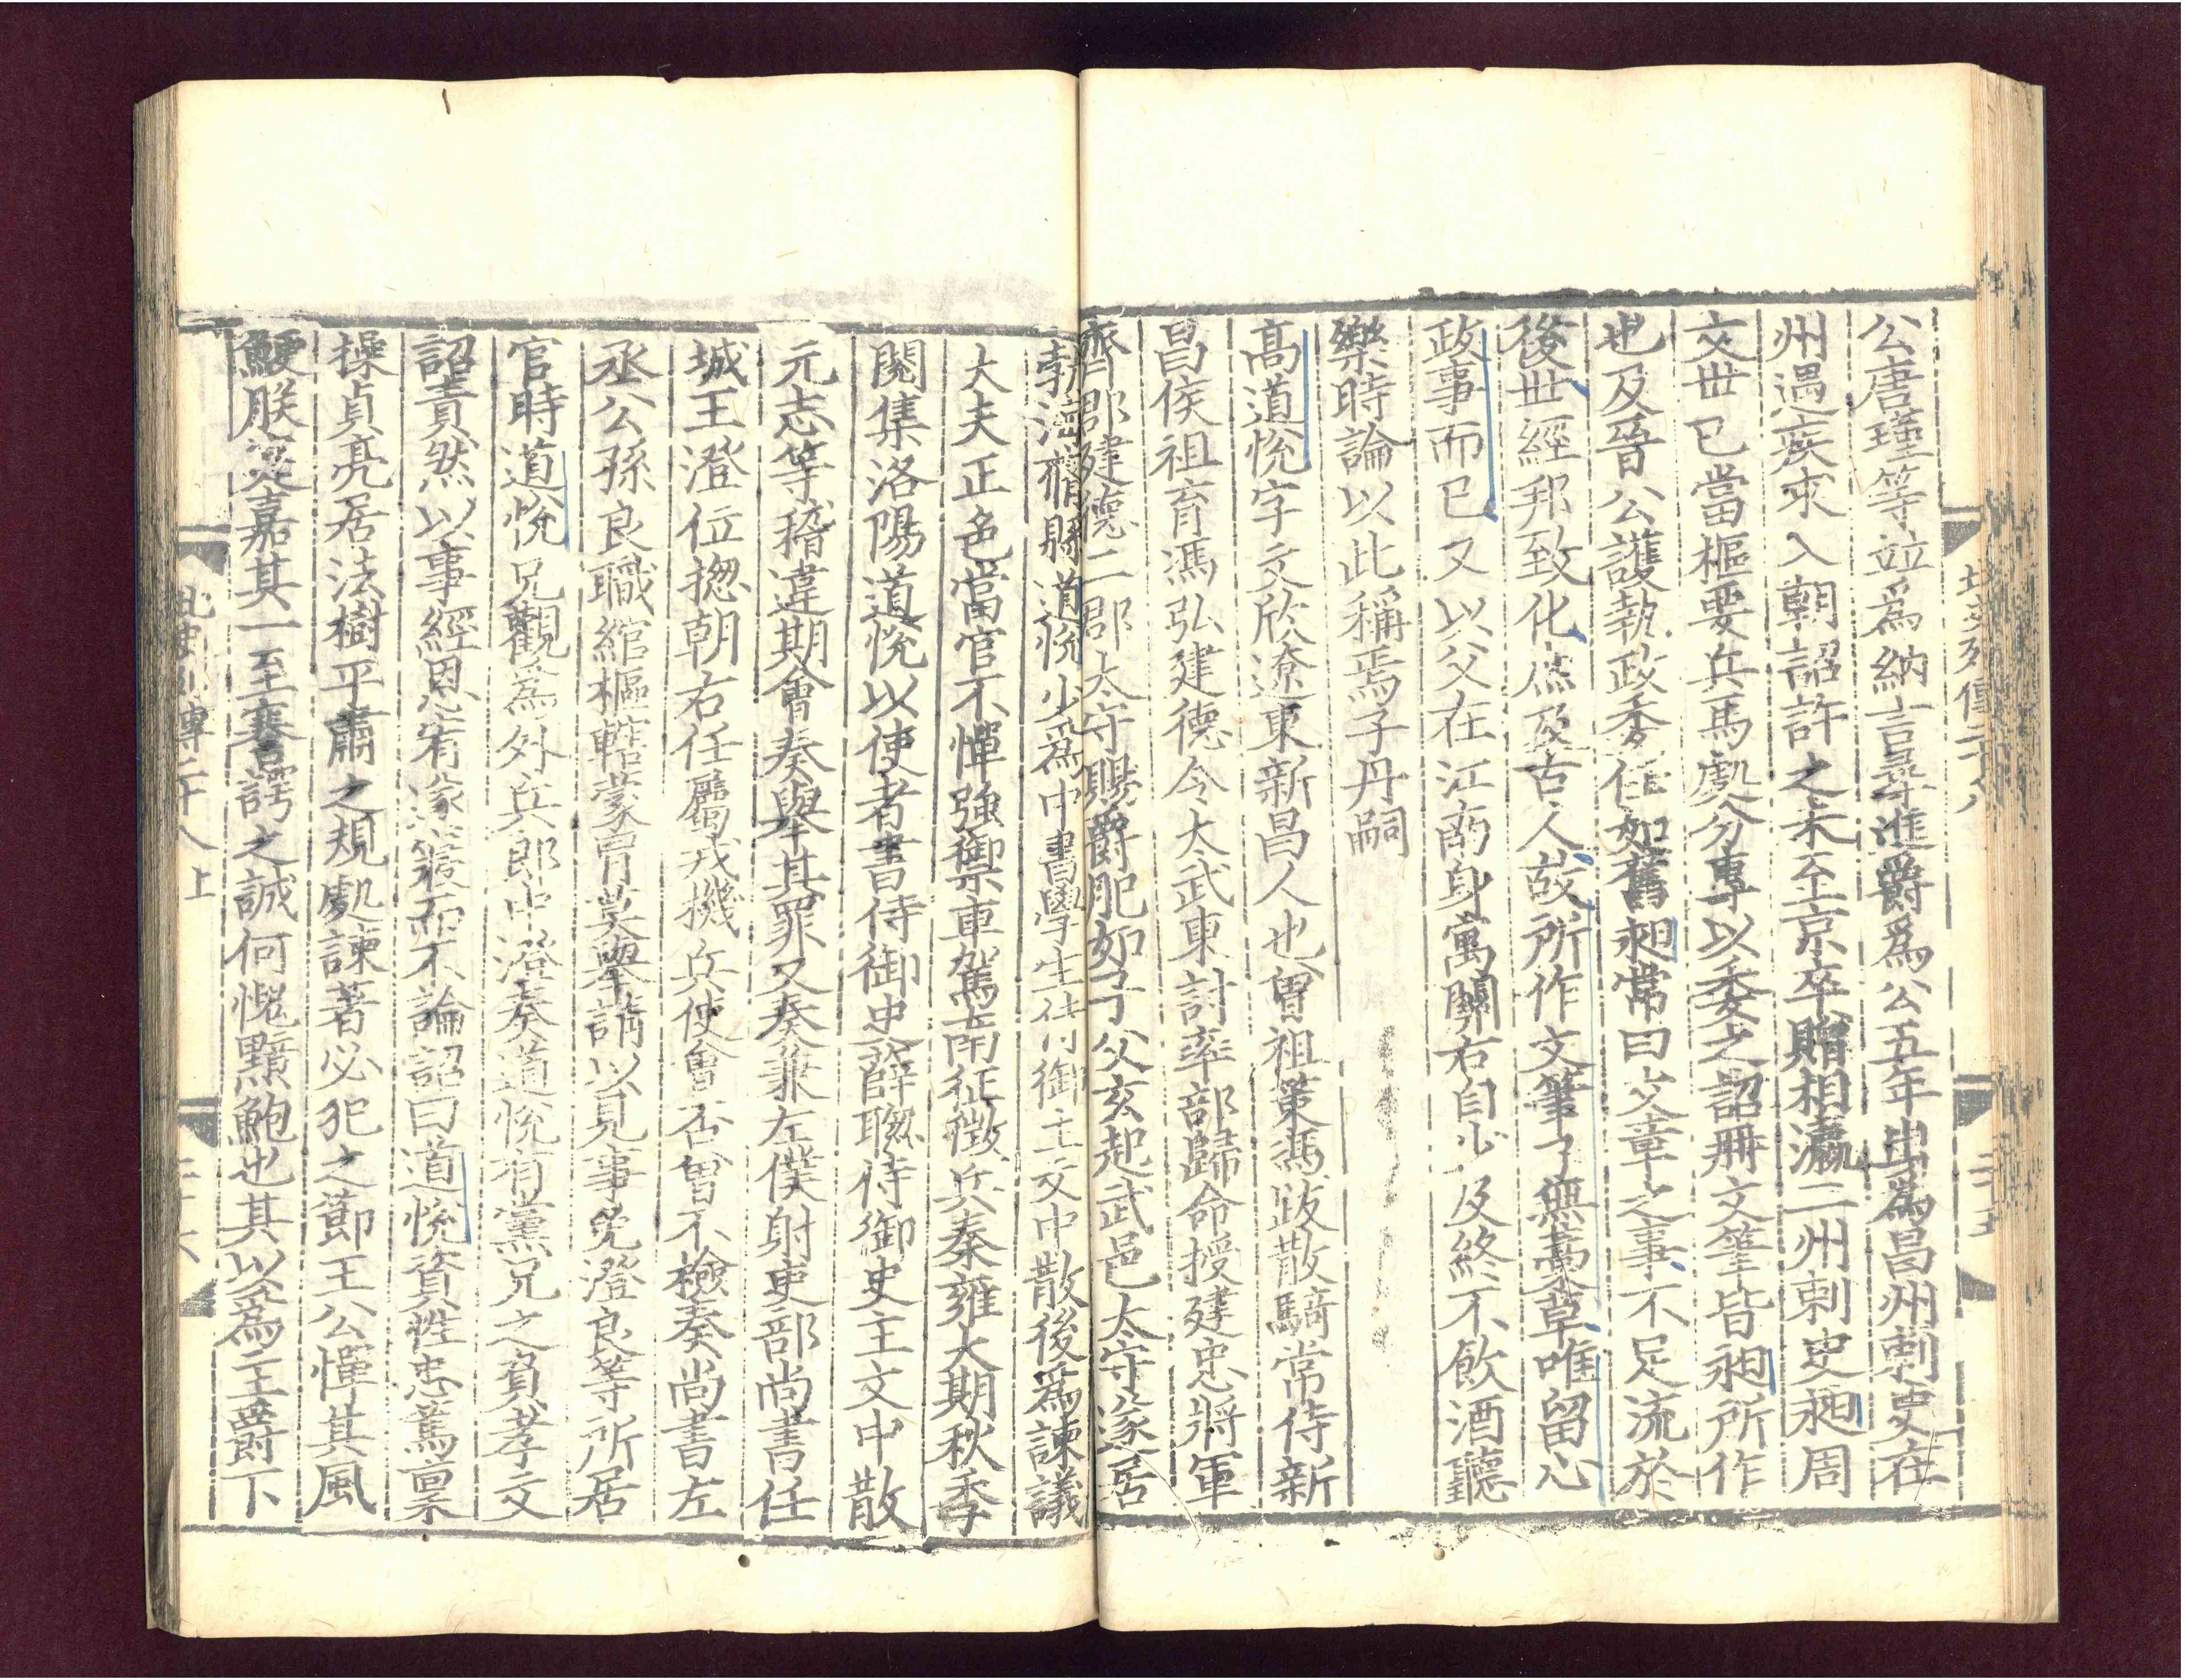 北史列傳二十八
二十五
公唐瑾等並爲納言尋進爵爲公五年出爲昌州刺史在
州遇疾求入朝詔許之未至京卒贈相瀛二州刺史昶周
文世已當樞要兵馬處分專以委之詔冊文筆皆昶所作
也及晉公護執政委任如舊昶常曰文章之事不足流於
後世經邦致化庶及古人故所作文筆了無藁草唯留心
政事而已又以父在江南身寓關右自少及終不飮酒聽
樂時論以此稱焉子丹嗣
高道悅字文欣遼東新昌人也曾祖策馮跋散騎常侍新
昌侯祖育馮弘建德令太武東討率部歸命授建忠將軍
齊郡建德二郡太守賜爵肥如子父玄起武邑太守遂居
勃海蓨縣道悅少爲中書學生侍御主文中散後爲諫議
大夫正色當官不憚強禦車駕南征徵兵秦雍大期秋季
閱集洛陽道悅以使者書侍御史薛聰侍御史主文中散
元志等稽違期會奏舉其罪又奏兼左僕射吏部尚書任
城王澄位揔朝右任屬戎機兵使會否曾不檢奏尚書左
丞公孫良職綰樞轄蒙冒莫舉請以見事免澄良等所居
官時道悅兄觀爲外兵郎中澄奏道悅有黨兄之負孝文
詔責然以事經恩宥遂寢而不論詔曰道悅資性忠篤禀
操貞亮居法樹平肅之規處諫著必犯之節王公憚其風
鯁朕寔嘉其一至謇諤之誠何愧黯鮑也其以爲主爵下
北史列傳二十八上
二十六